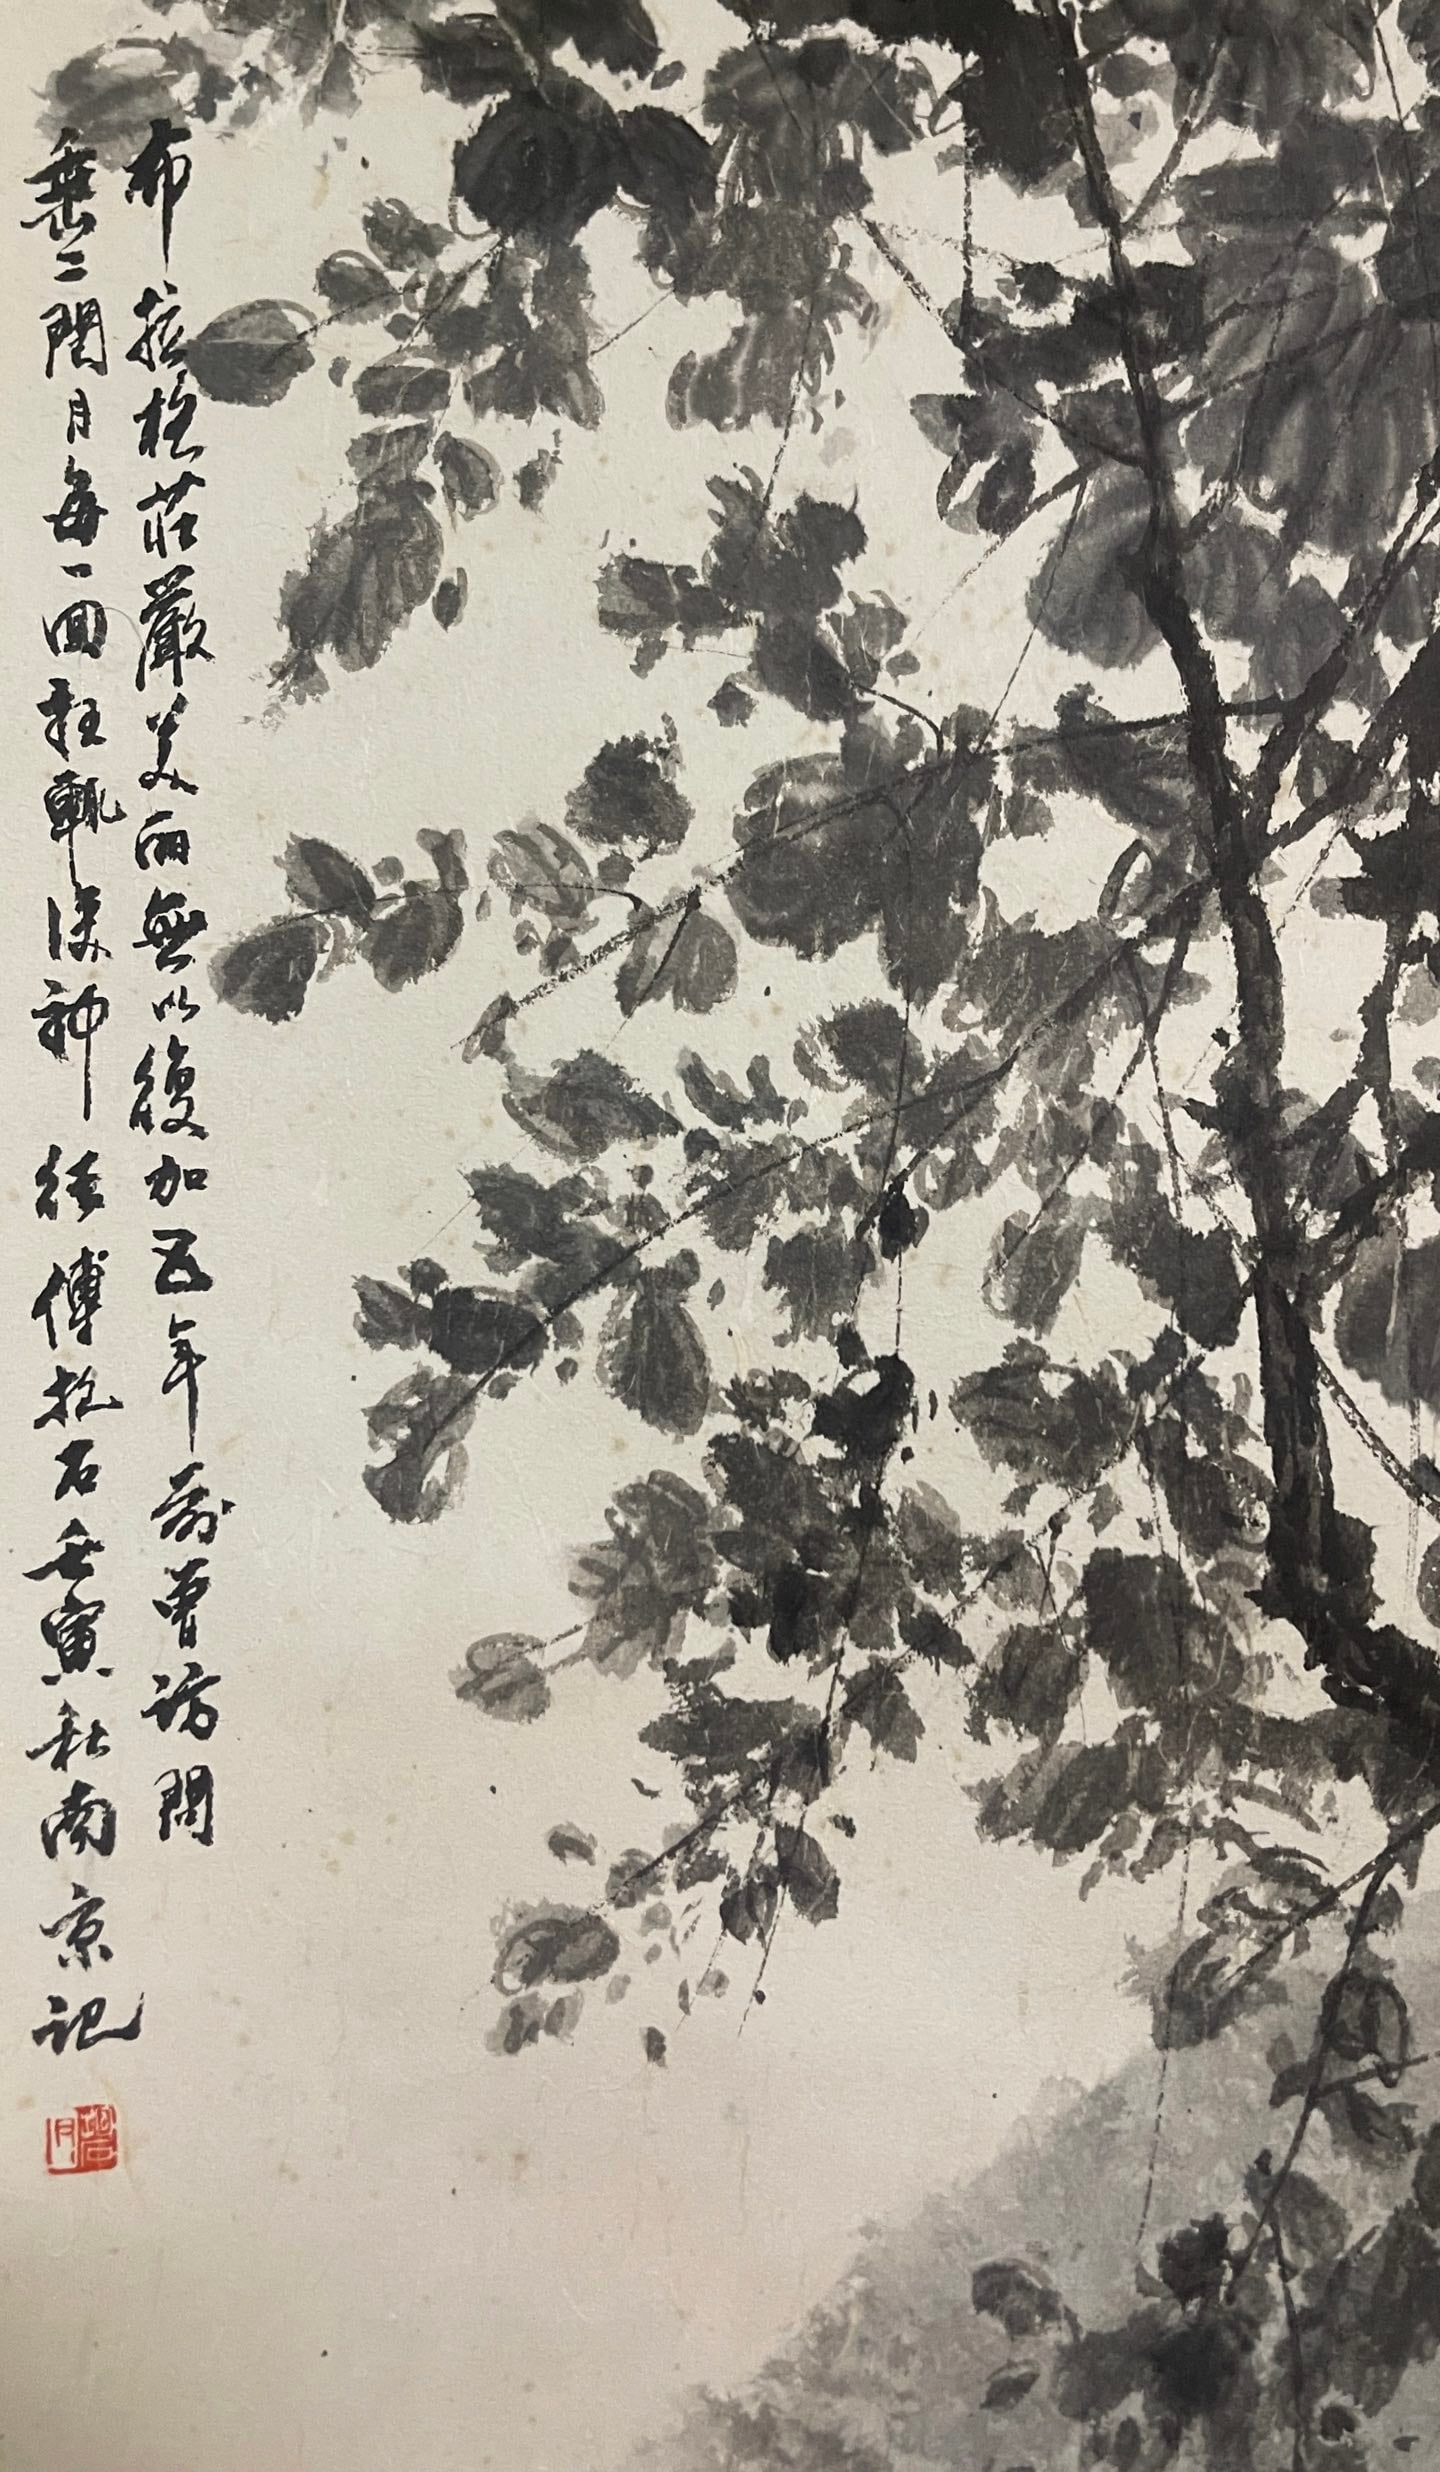 布拉格莊嚴美麗無以復加五年前曾訪問
垂二閱月每一回王輒復神往傅抱石壬寅秋南京記